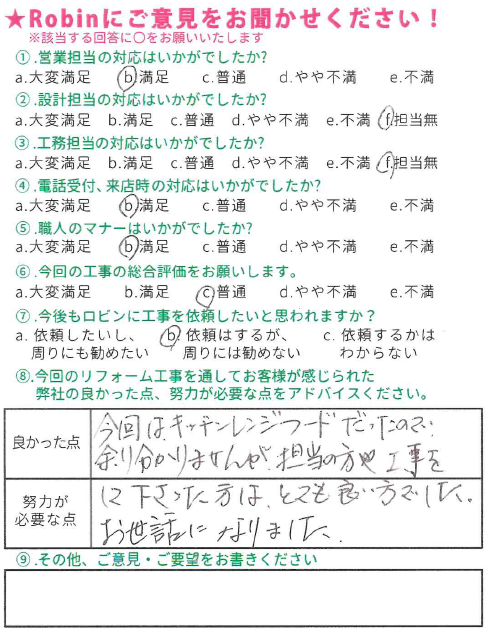 ★Robinにご意見をお聞かせください！
※該当する回答に〇をお願いいたします
①.営業担当の対応はいかがでしたか?
a.大変満足 b.満足 c.普通 d.やや不満 e.不満
②.設計担当の対応はいかがでしたか?
a.大変満足 b.満足 c.普通 d.やや不満 e.不満 f.担当無
③.工務担当の対応はいかがでしたか?
a.大変満足 b.満足 c.普通 d.やや不満 e.不満 f.担当無
④.電話受付、来店時の対応はいかがでしたか?
a.大変満足 b.満足 c.普通 d.やや不満 e.不満
⑤.職人のマナーはいかがでしたか?
a.大変満足 b.満足 c.普通 d.やや不満 e.不満
⑥.今回の工事の総合評価をお願いします。
a.大変満足 b.満足 c.普通 d.やや不満 e.不満
⑦.今後もロビンに工事を依頼したいと思われますか？
a. 依頼したいし、 b. 依頼はするが、 c. 依頼するかは
周りにも勧めたい 周りには勧めない わからない
⑧.今回のリフォーム工事を通してお客様が感じられた
弊社の良かった点、努力が必要な点をアドバイスください。
良かった点
今回は、キッチンレンジフードだったので、
余り分かりませんが、担当の方や工事を
努力が
必要な点
に下さった方は、とても良い方でした。
お世話になりました。
⑨.その他、ご意見・ご要望をお書きください